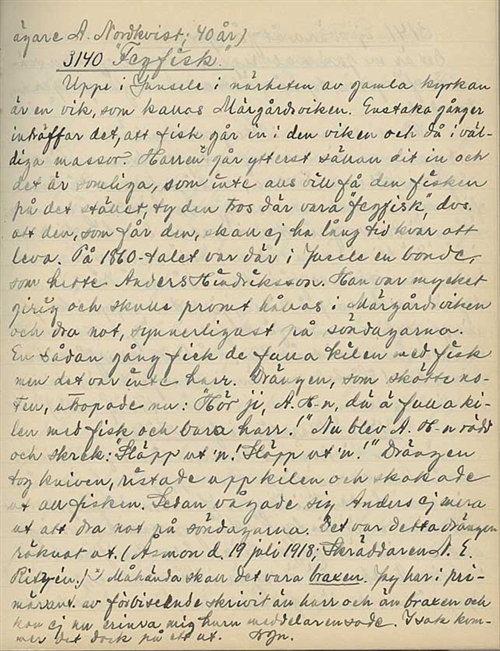 ägare A. Nordkvist; 40 år)
3140 "Feyfisk."
Uppe i Junsele i närheten av gamla kyrkan
är en vik, som kallas Märgårdsviken. Enstaka gånger
inträffar det, att fisk går in i den viken och då i väl-
diga massor. Harren går ytterst sällan dit in och
det är somliga, som inte alls vill få den fisken
på det stället, ty den tros där vara "feyfisk", dvs.
att den, som får den, skall ej ha lång tid kvar att
leva. På 1860-talet var där i Junsele en bonde,
som hette Anders Hindriksson. Han var mycket
girig och skulle promt hållas i Märgårdsviken
och dra not, synnerligast på söndagarna.
En sådan gång fick de fulla kilen med fisk
men det var inte harr. Drängen, som skötte no-
ten, utropade nu: "Hör ji, A. H-n, du ä fulla ki-
len med fisk och bara harr!" Nu blev A. H-n rädd
och skrek: "Släpp ut 'n! Släpp ut 'n!" Drängen
tog kniven, ristade upp kilen och skakade
ut all fisken. Sedan vågade sig Anders ej mera
ut att dra not på söndagarna. Det var detta drängen
räknat ut. (Åsmon d. 19 juli 1918; Skräddaren A. E.
Måhända skall det vara braxen. Jag har i pri-
märant. av förbiseende skrivit än harr och än braxen och
kan ej nu erinra mig hurn meddelaren sade. I sak kom-
mer det dock på ett ut.